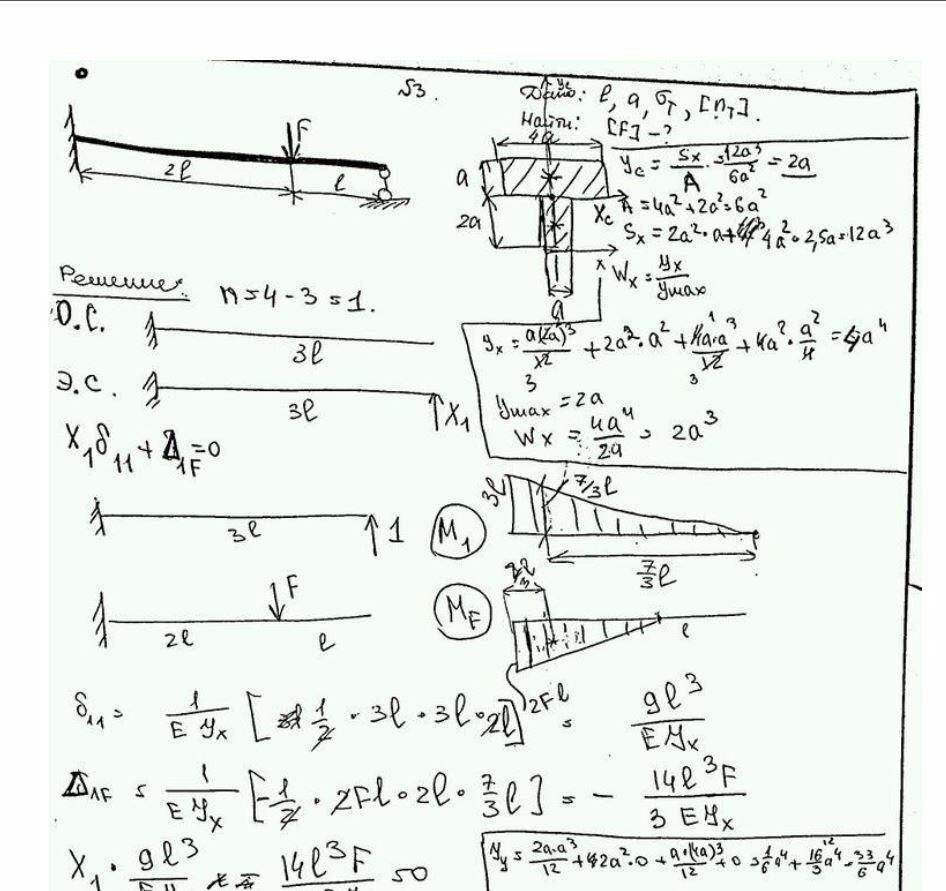 №3.
Дано: l, a, σт, [nт].
Найти: [F] - ?
F
2l
l
4a
a
2a
a
yc
Xc
x
yc = Sx/A = 12a³/6a² = 2a
A = 4a² + 2a² = 6a²
Sx = 2a²·a + 4a²·2,5a = 12a³
Wx = Jx/ymax
Решение.
n = 4 - 3 = 1.
О.С.
3l
Э.С.
3l
X₁
Jx = a(2a)³/12 + 2a²·a² + 4a·a³/12 + 4a²·a²/4 = 4a⁴
3
3
ymax = 2a
Wx = 4a⁴/2a = 2a³
X₁δ₁₁ + Δ₁F = 0
3l
1
M₁
3l
7/3 l
7/3 l
F
2l
l
MF
l
2Fl
δ₁₁ = 1/EJx [1/2 · 3l · 3l · 2l] = 9l³/EJx
Δ₁F = 1/EJx [-1/2 · 2Fl · 2l · 7/3 l] = - 14l³F/3EJx
X₁ · 9l³ 14l³F = 0
Jy = 2a·a³/12 + 2a²·0 + a·(4a)³/12 + 0 = 1/6 a⁴ + 16/3 a⁴ = 33/6 a⁴